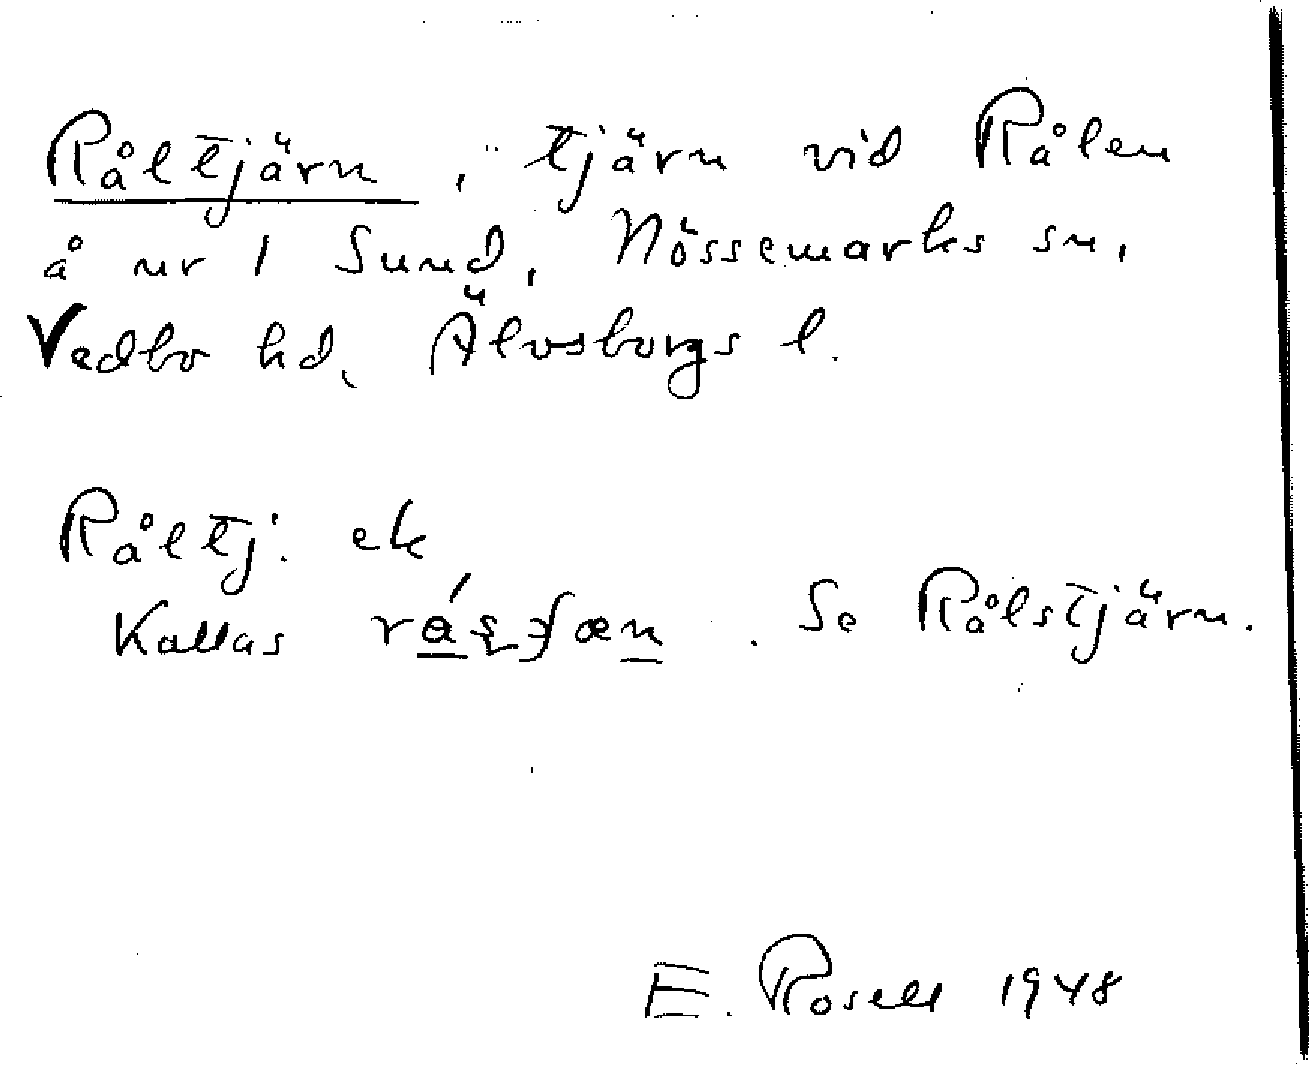 Råltjärn, tjärn vid Rålen
å nr 1 Sund, Nössemarks sn,
Vedbo hd, Älvsborgs l.
Råltj. ek
Kallas . Se Rålstjärn.
E. Rosell 1948